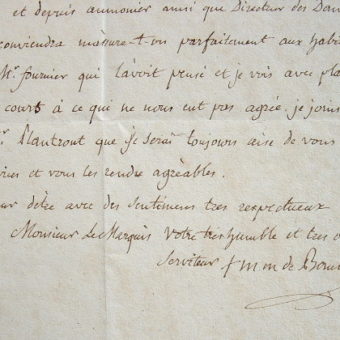 et depuis aumonier ainsi que Directeur des Dam
conviendra m'assure-t-on parfaitement aux habi
Mr. fournier qui l'avoit pensé et je vois avec pla
court à ce qui ne nous eut pas agréé. je joins
r. Plantront que je serai toujours aise de vous
et vous les rendre agréables.
ur dêtre avec des sentimens tres respectueux
Monsieur Le Marquis Votre tres humble et tres o
Serviteur f m m de